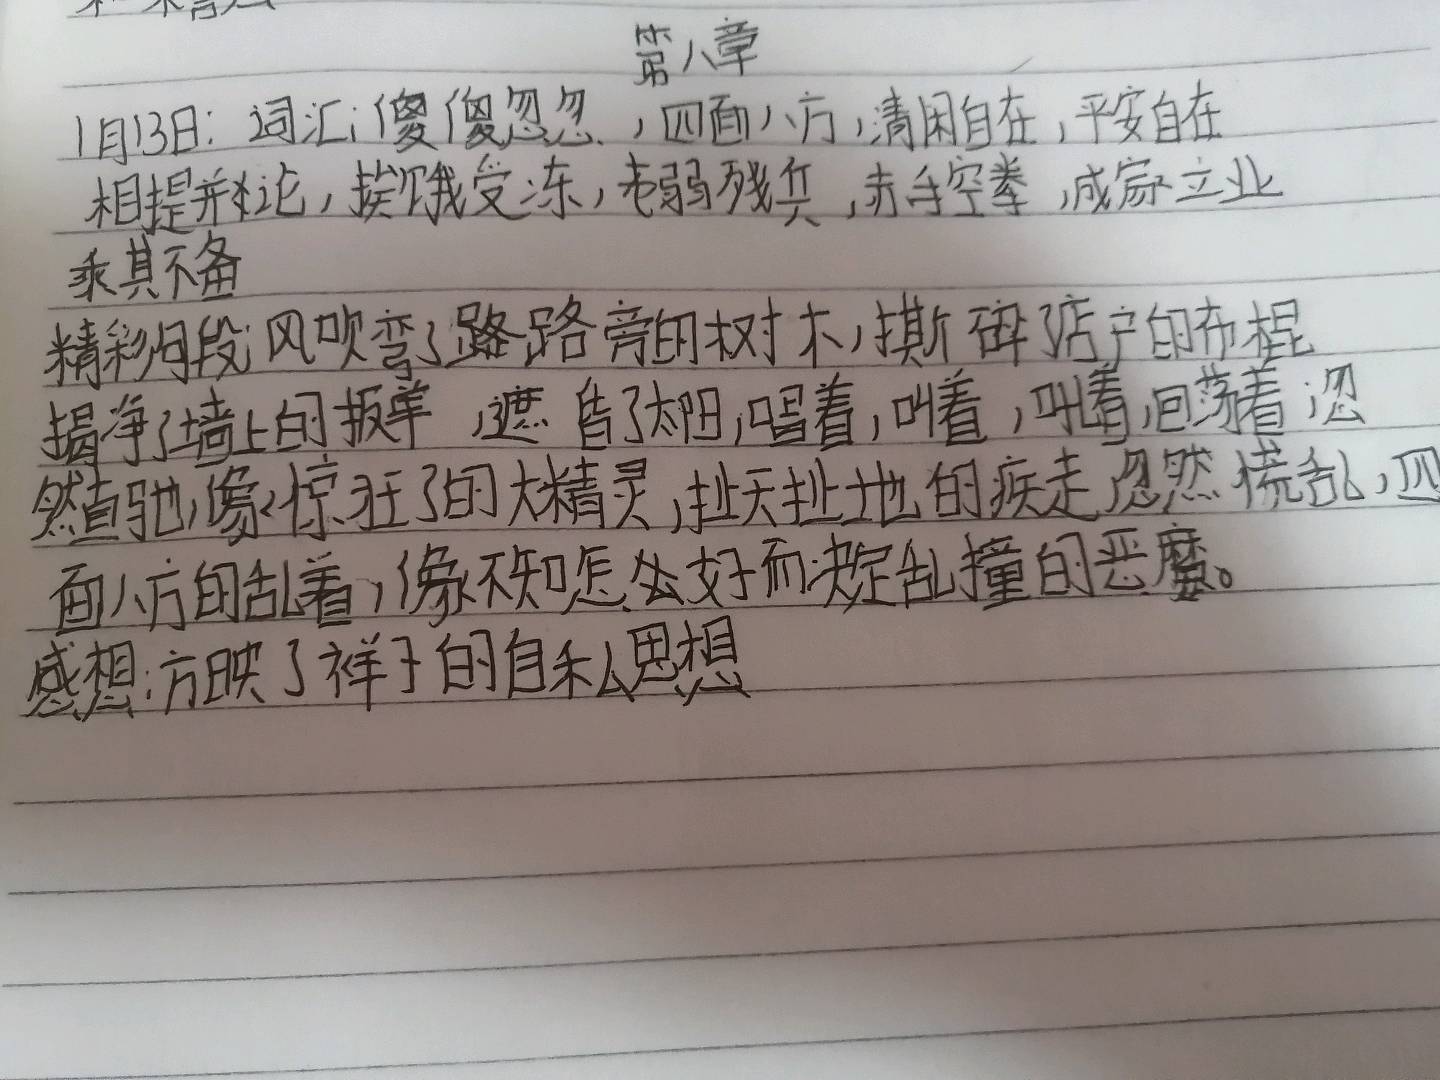 第八章
1月13日：词汇：傻傻忽忽，四面八方，清闲自在，平安自在
相提并论，挨饿受冻，老弱残兵，赤手空拳，成家立业
乘其不备
精彩片段：风吹弯了路路旁的树木，撕碎了店户的布棍
揭净了墙上的报单，遮皆了太阳，唱着，叫着，叫着，回荡着；忽
然直驰，像惊狂了的大精灵，扯天扯地的疾走忽然慌乱，四
面八方的乱着，像不知怎么好而决定乱撞的恶魔。
感想：方映了祥子的自私思想